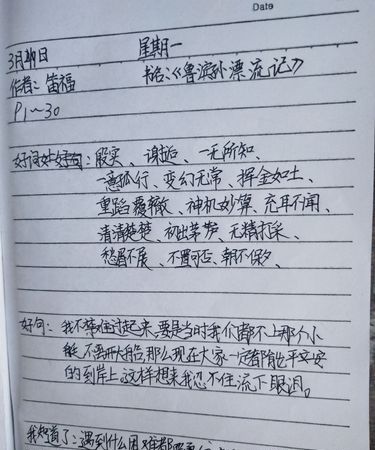 Date
3月29日 星期一
作者：笛福 书名：《鲁滨孙漂流记》
P1~30
好词好句：殷实、谢诟、一无所知、
一意孤行、变幻无常、挥金如土、
重蹈覆辙、神机妙算、充耳不闻、
清清楚楚、初出茅芳、无精打采、
愁眉不展、不置可否、朝不保夕、
好句：我不禁难过起来，要是当时我们都不上那个小
艇，不离开大船，那么现在大家一定都能平平安安
的到岸上，这样想来我忍不住流下眼泪。
我知道了：遇到什么困难都要